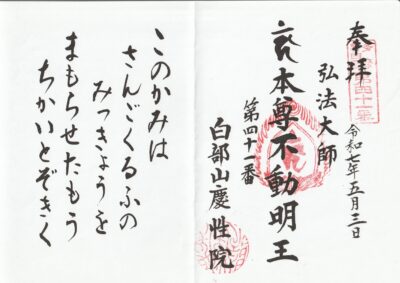 奉拝
弘法大師
令和七年五月三日
本尊不動明王
第四十一番
白部山慶性院
このかみは
さんごくるふの
みつきょうを
まもらせたもう
ちかいとぞきく